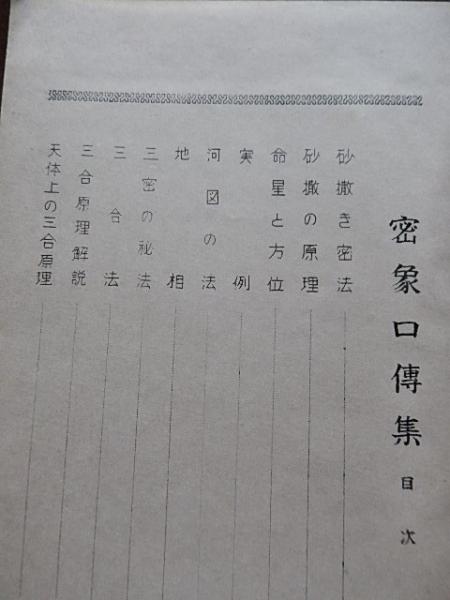 密象口傳集 目次
砂撒き密法
砂撒の原理
命星と方位
実例
河図の法
地相
三密の秘法
三合法
三合原理解説
天体上の三合原理